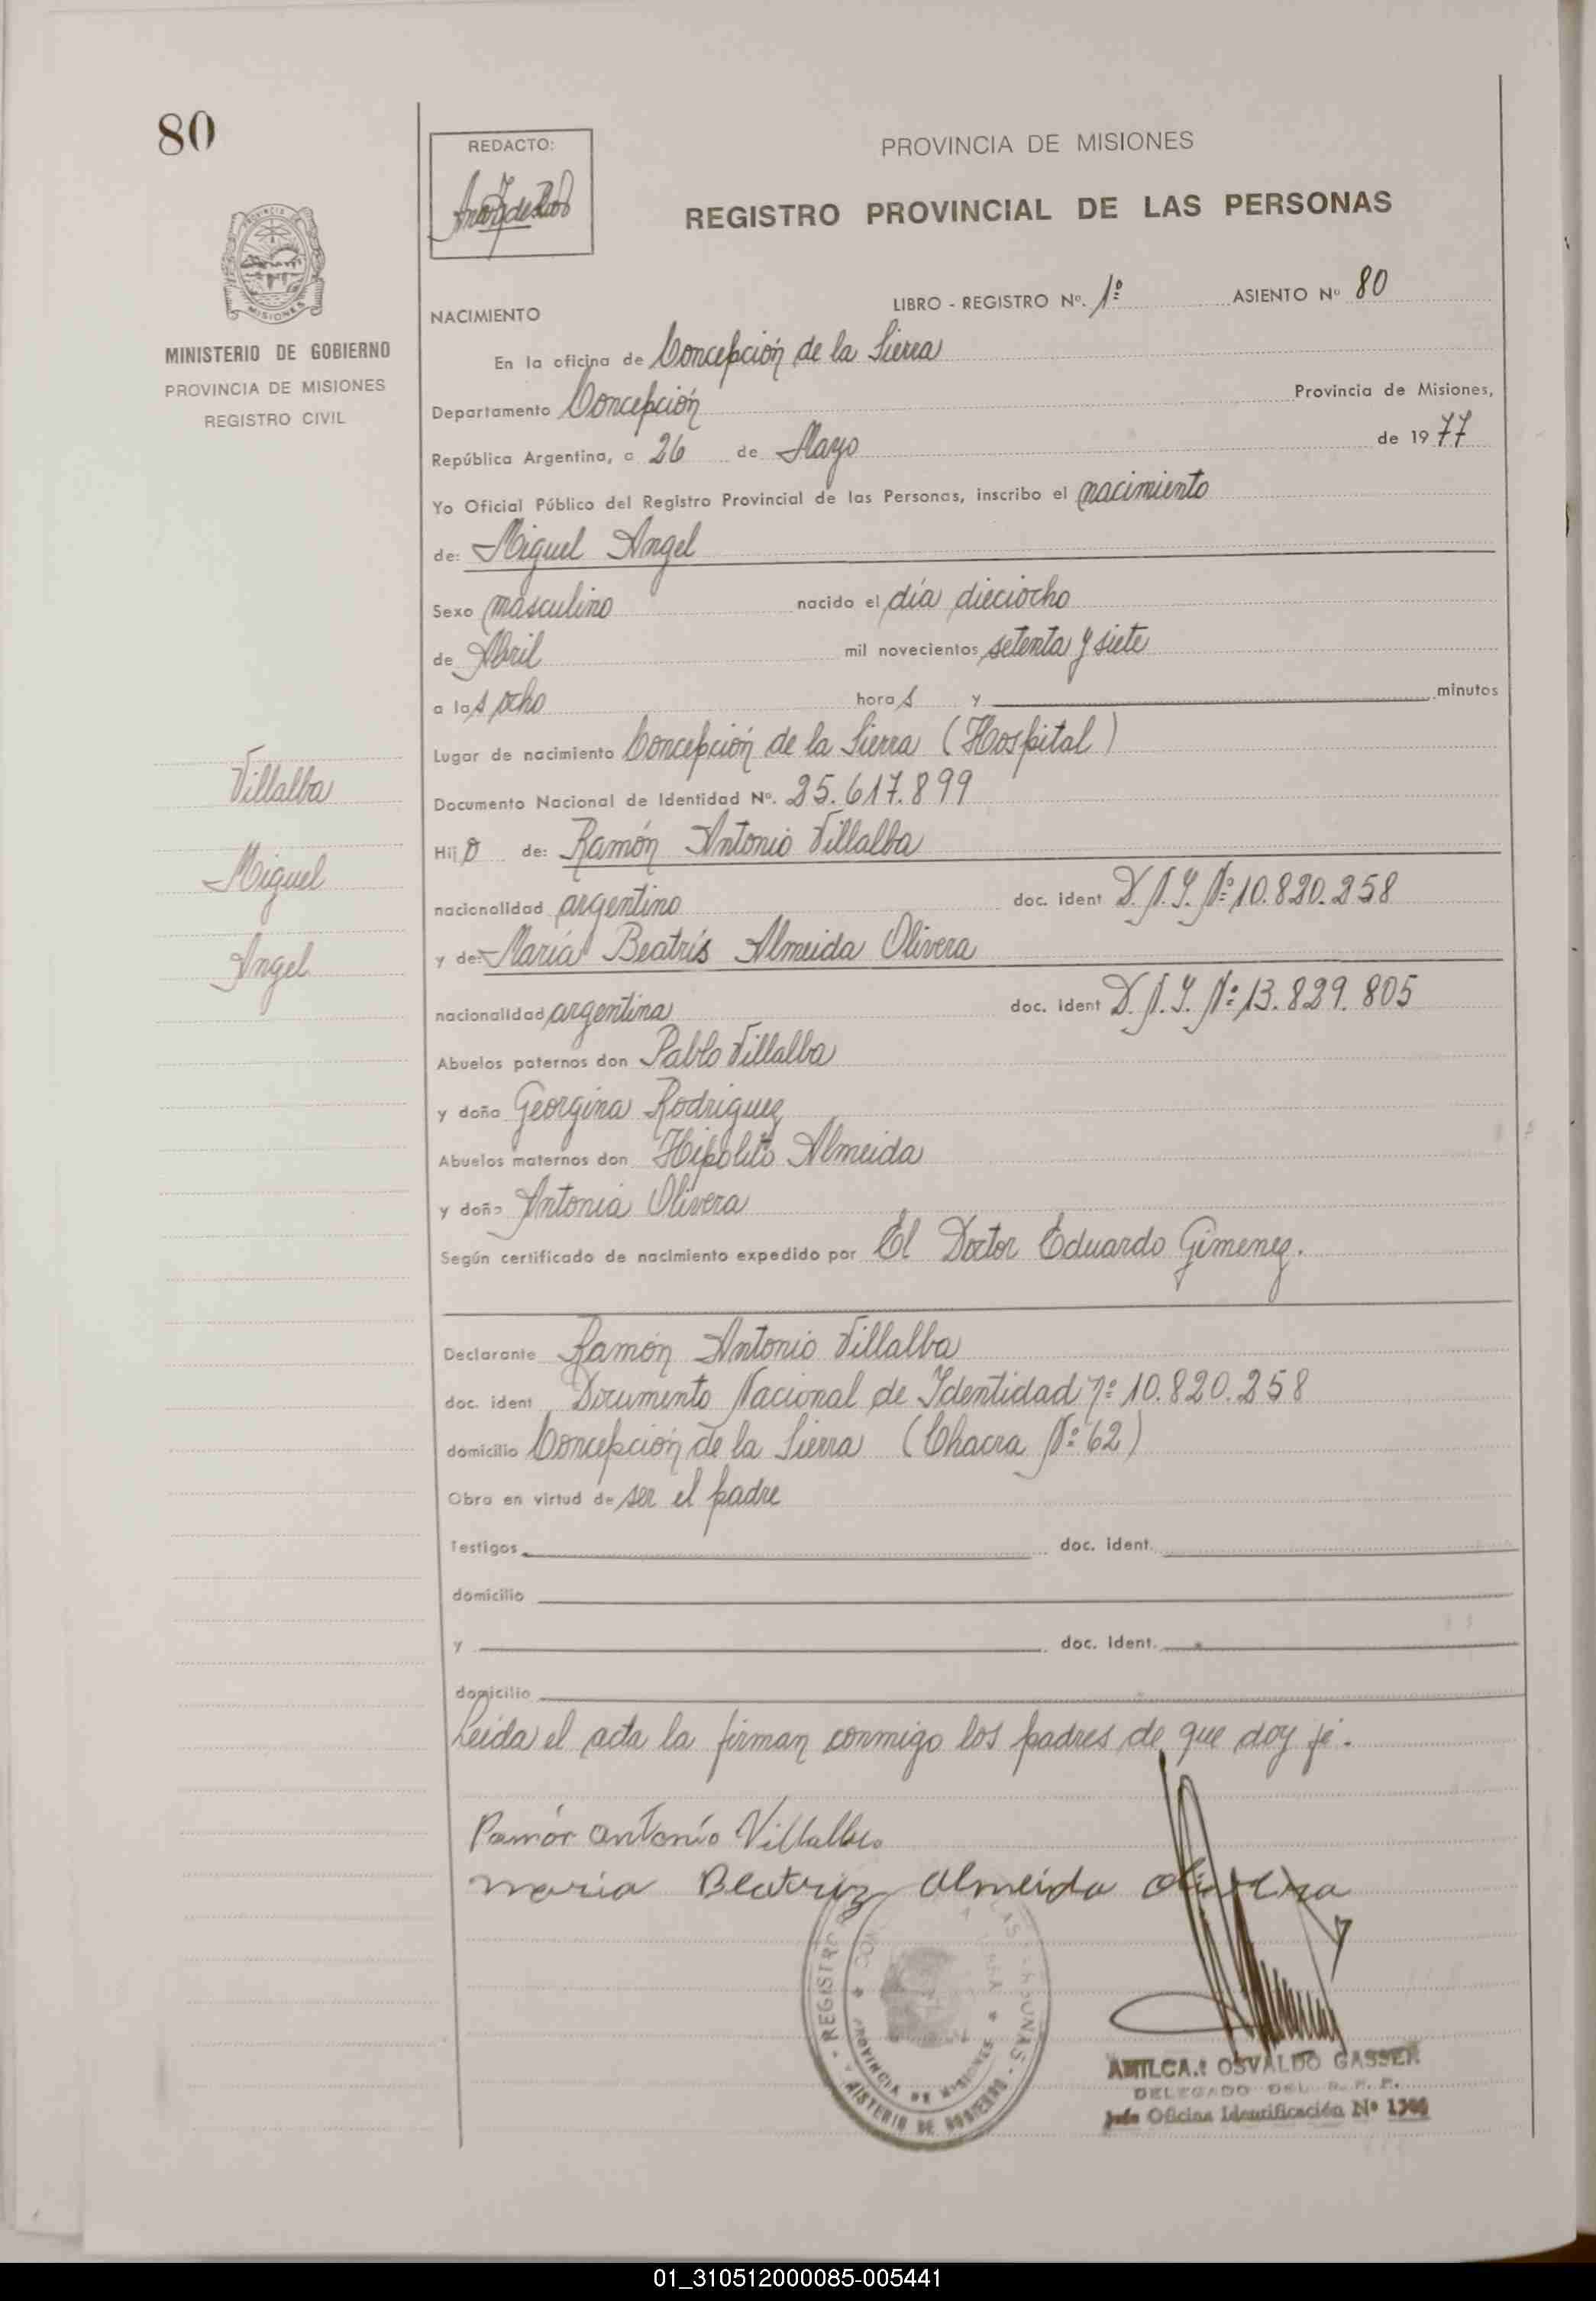 80
REDACTO:
PROVINCIA DE MISIONES
REGISTRO PROVINCIAL DE LAS PERSONAS
MISIONES
MINISTERIO DE GOBIERNO
PROVINCIA DE MISIONES
REGISTRO CIVIL
LIBRO - REGISTRO Nº. 1º ASIENTO Nº 80
NACIMIENTO
En la oficina de Concepción de la Sierra
Departamento Concepción Provincia de Misiones,
República Argentina, a 26 de Mayo de 1977
Yo Oficial Público del Registro Provincial de las Personas, inscribo el nacimiento
de: Miguel Angel
Sexo masculino nacido el día dieciocho
de Abril mil novecientos setenta y siete
a las ocho horas y minutos
Lugar de nacimiento Concepción de la Sierra (Hospital)
Documento Nacional de Identidad Nº. 25.617.899
Hijo de: Ramón Antonio Villalba
nacionalidad argentino doc. ident D.N.I. Nº 10.820.258
y de: María Beatris Almeida Olivera
nacionalidad argentina doc. ident D.N.I. Nº 13.829.805
Abuelos paternos don Pablo Villalba
y doña Georgina Rodriguez
Abuelos maternos don Hipólito Almeida
y doña Antonia Olivera
Según certificado de nacimiento expedido por El Doctor Eduardo Gimenez.
Villalba
Miguel
Angel
Declarante Ramón Antonio Villalba
doc. ident Documento Nacional de Identidad nº 10.820.258
domicilio Concepción de la Sierra (Chacra Nº 62)
Obra en virtud de ser el padre
Testigos doc. ident.
domicilio
y doc. ident.
domicilio
Leída el acta la firman conmigo los padres de que doy fé.
Ramón Antonio Villalba
maria Beatriz almeida olivera
REGISTRO
PROVINCIA DE MISIONES
MINISTERIO DE GOBIERNO
AMILCAR OSVALDO GASSER
DELEGADO DEL R. P. P.
Jefe Oficina Identificación Nº
01_310512000085-005441